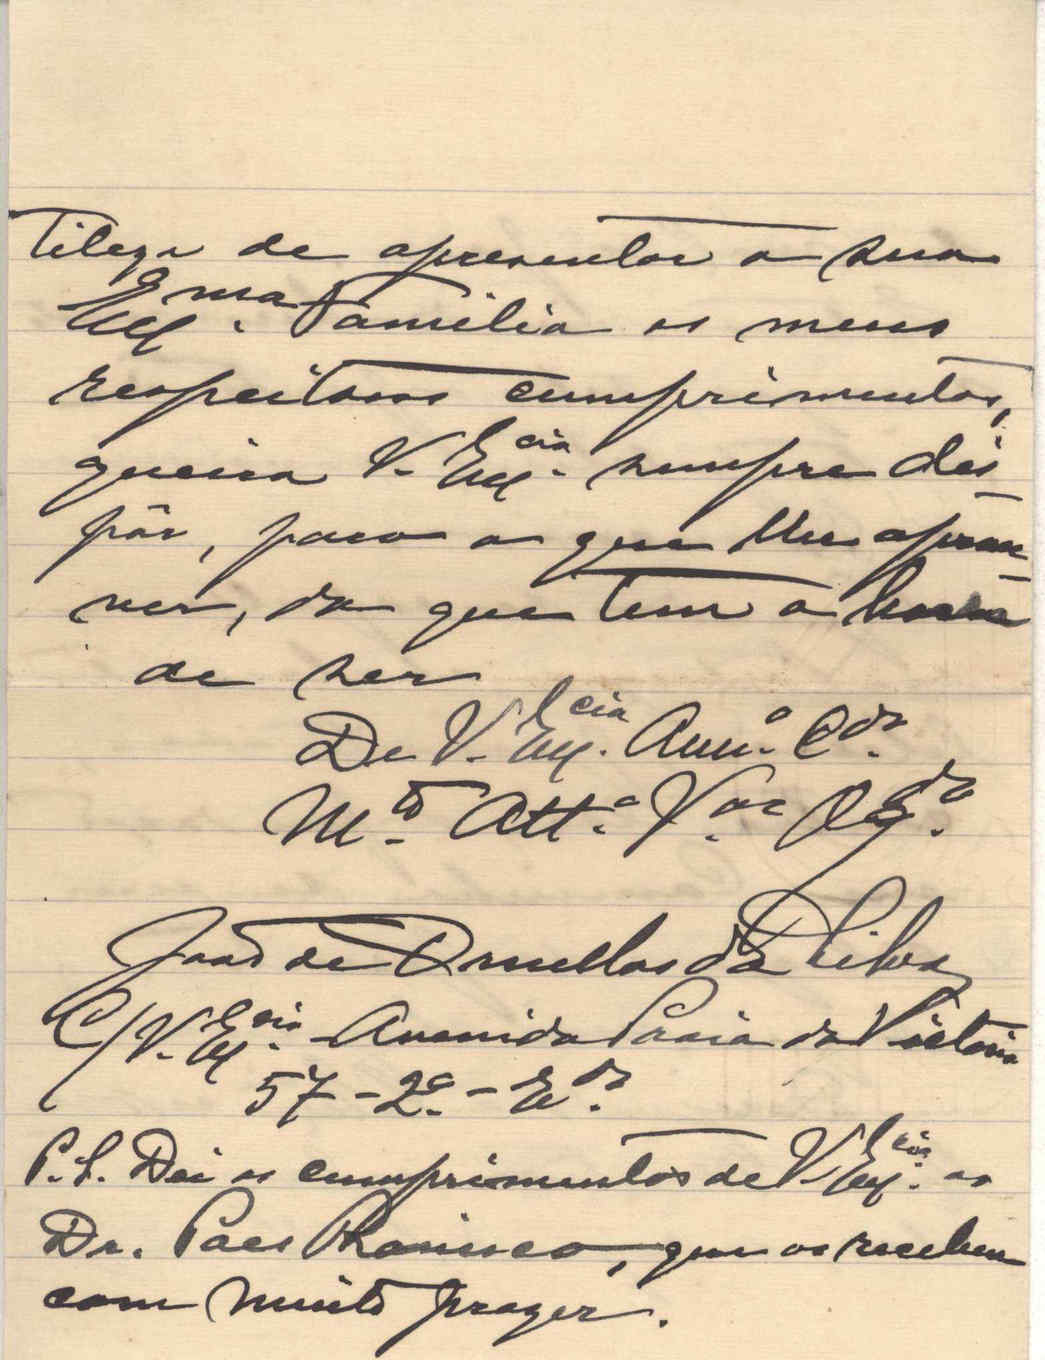 tileza de apresentar a sua
Exma. Familia os meus
respeitosos cumprimentos,
queira V. Excia. sempre dis
pôr, para o que lhe aprou-
ver, do que tem a honra
de ser
De V. Excia. Amo. Cdo.
Mto. Atto. Vor Obgdo.
João de Ornellas da Silva
C/V. Excia - Avenida Praia da Victoria
57 - 2º. - Edo.
P.S. Dei os cumprimentos de V. Excia. ao
Dr. Paes, que os recebeu
com muito prazer.